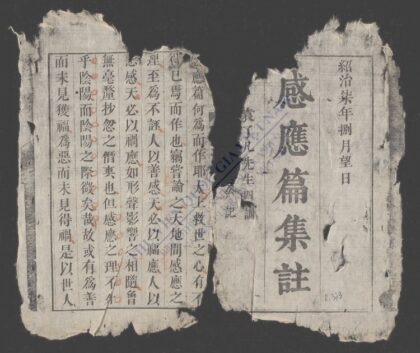 紹治柒年捌月望日
感應篇集註
袁了凡先生四訓
應篇何為而作耶太上救世之心有不
已焉而作也竊嘗論之天地間感應之
理至為不誣人以善感天必以福應人以
惡感天必以禍應如形聲影響之相隨曾
無毫釐抄忽之僭爽也但感應之理不外
乎陰陽而陰陽之際微矣哉故或有為善
而未見獲福為惡而未見得禍是以世人